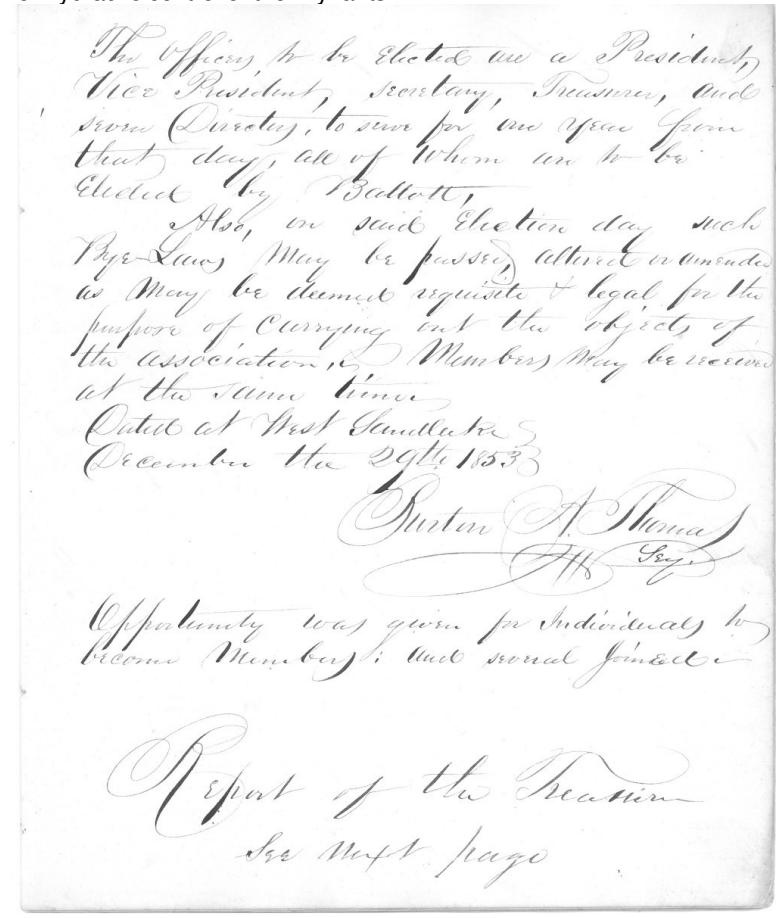 The Officers to be Elected are a President,
Vice President, secretary, Treasurer, and
seven Directors, to serve for one year from
that day, all of whom are to be
Elected by Ballott,
Also, on said Election day such
Bye-Laws May be passed, altered or amended
as May be deemed requisite & legal for the
purpose of Carrying out the objects of
the association, Members May be received
at the same time
Dated at West Sandlake
December the 29th 1853
Burton A. Thomas
Secy.
Opportunity was given for Individuals to
become Members; and several Joined
Report of the Treasurer
See Next page